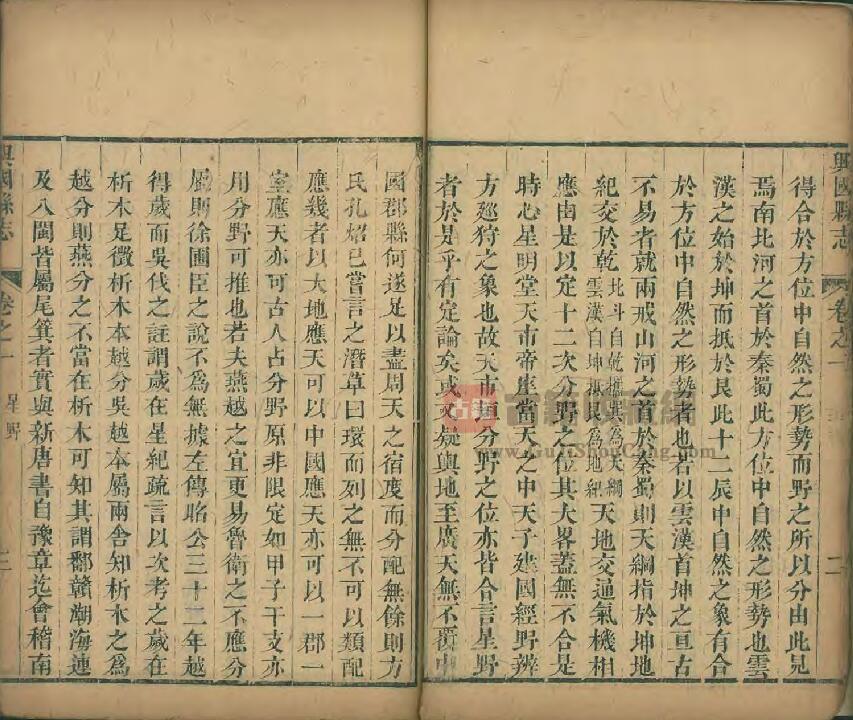 興國縣志
卷之一
二
得合於方位中自然之形勢而野之所以分由此見
焉南北河之首於秦蜀此方位中自然之形勢也雲
漢之始於坤而抵於艮此十二辰中自然之象有合
於方位中自然之形勢者也若以雲漢首坤之亘古
不易者就兩戒山河之首於秦蜀則天綱指於坤地
紀交於乾北斗自乾攜巽為天綱雲漢自坤抵艮為地紀天地交通氣機相
應由是以定十二次分野之位其大畧蓋無不合是
時心星明堂天市帝座當天之中天子建國經野辨
方廵狩之象也故天市垣分野之位亦皆合言星野
者於是乎有定論矣或又疑輿地至廣天無不覆中
國郡縣何遂足以盡周天之宿度而分配無餘則方
氏孔炤已嘗言之潛草曰環而列之無不可以類配
應幾者以大地應天可以中國應天亦可以一郡一
室應天亦可古人占分野原非限定如甲子干支亦
用分野可推也若夫燕越之宜更易魯衛之不應分
屬則徐圃臣之說不為無據左傳昭公三十二年越
得歲而吳伐之註謂歲在星紀疏言以次考之歲在
析木足徵析木本越分吳越本屬兩舍知析木之為
越分則燕分之不當在析木可知其謂鄱贛潮海連
及八閩皆屬尾箕者實與新唐書自豫章迄會稽南
興國縣志
卷之一
星野
三
古籍收藏網
www.GuJiShouCang.com